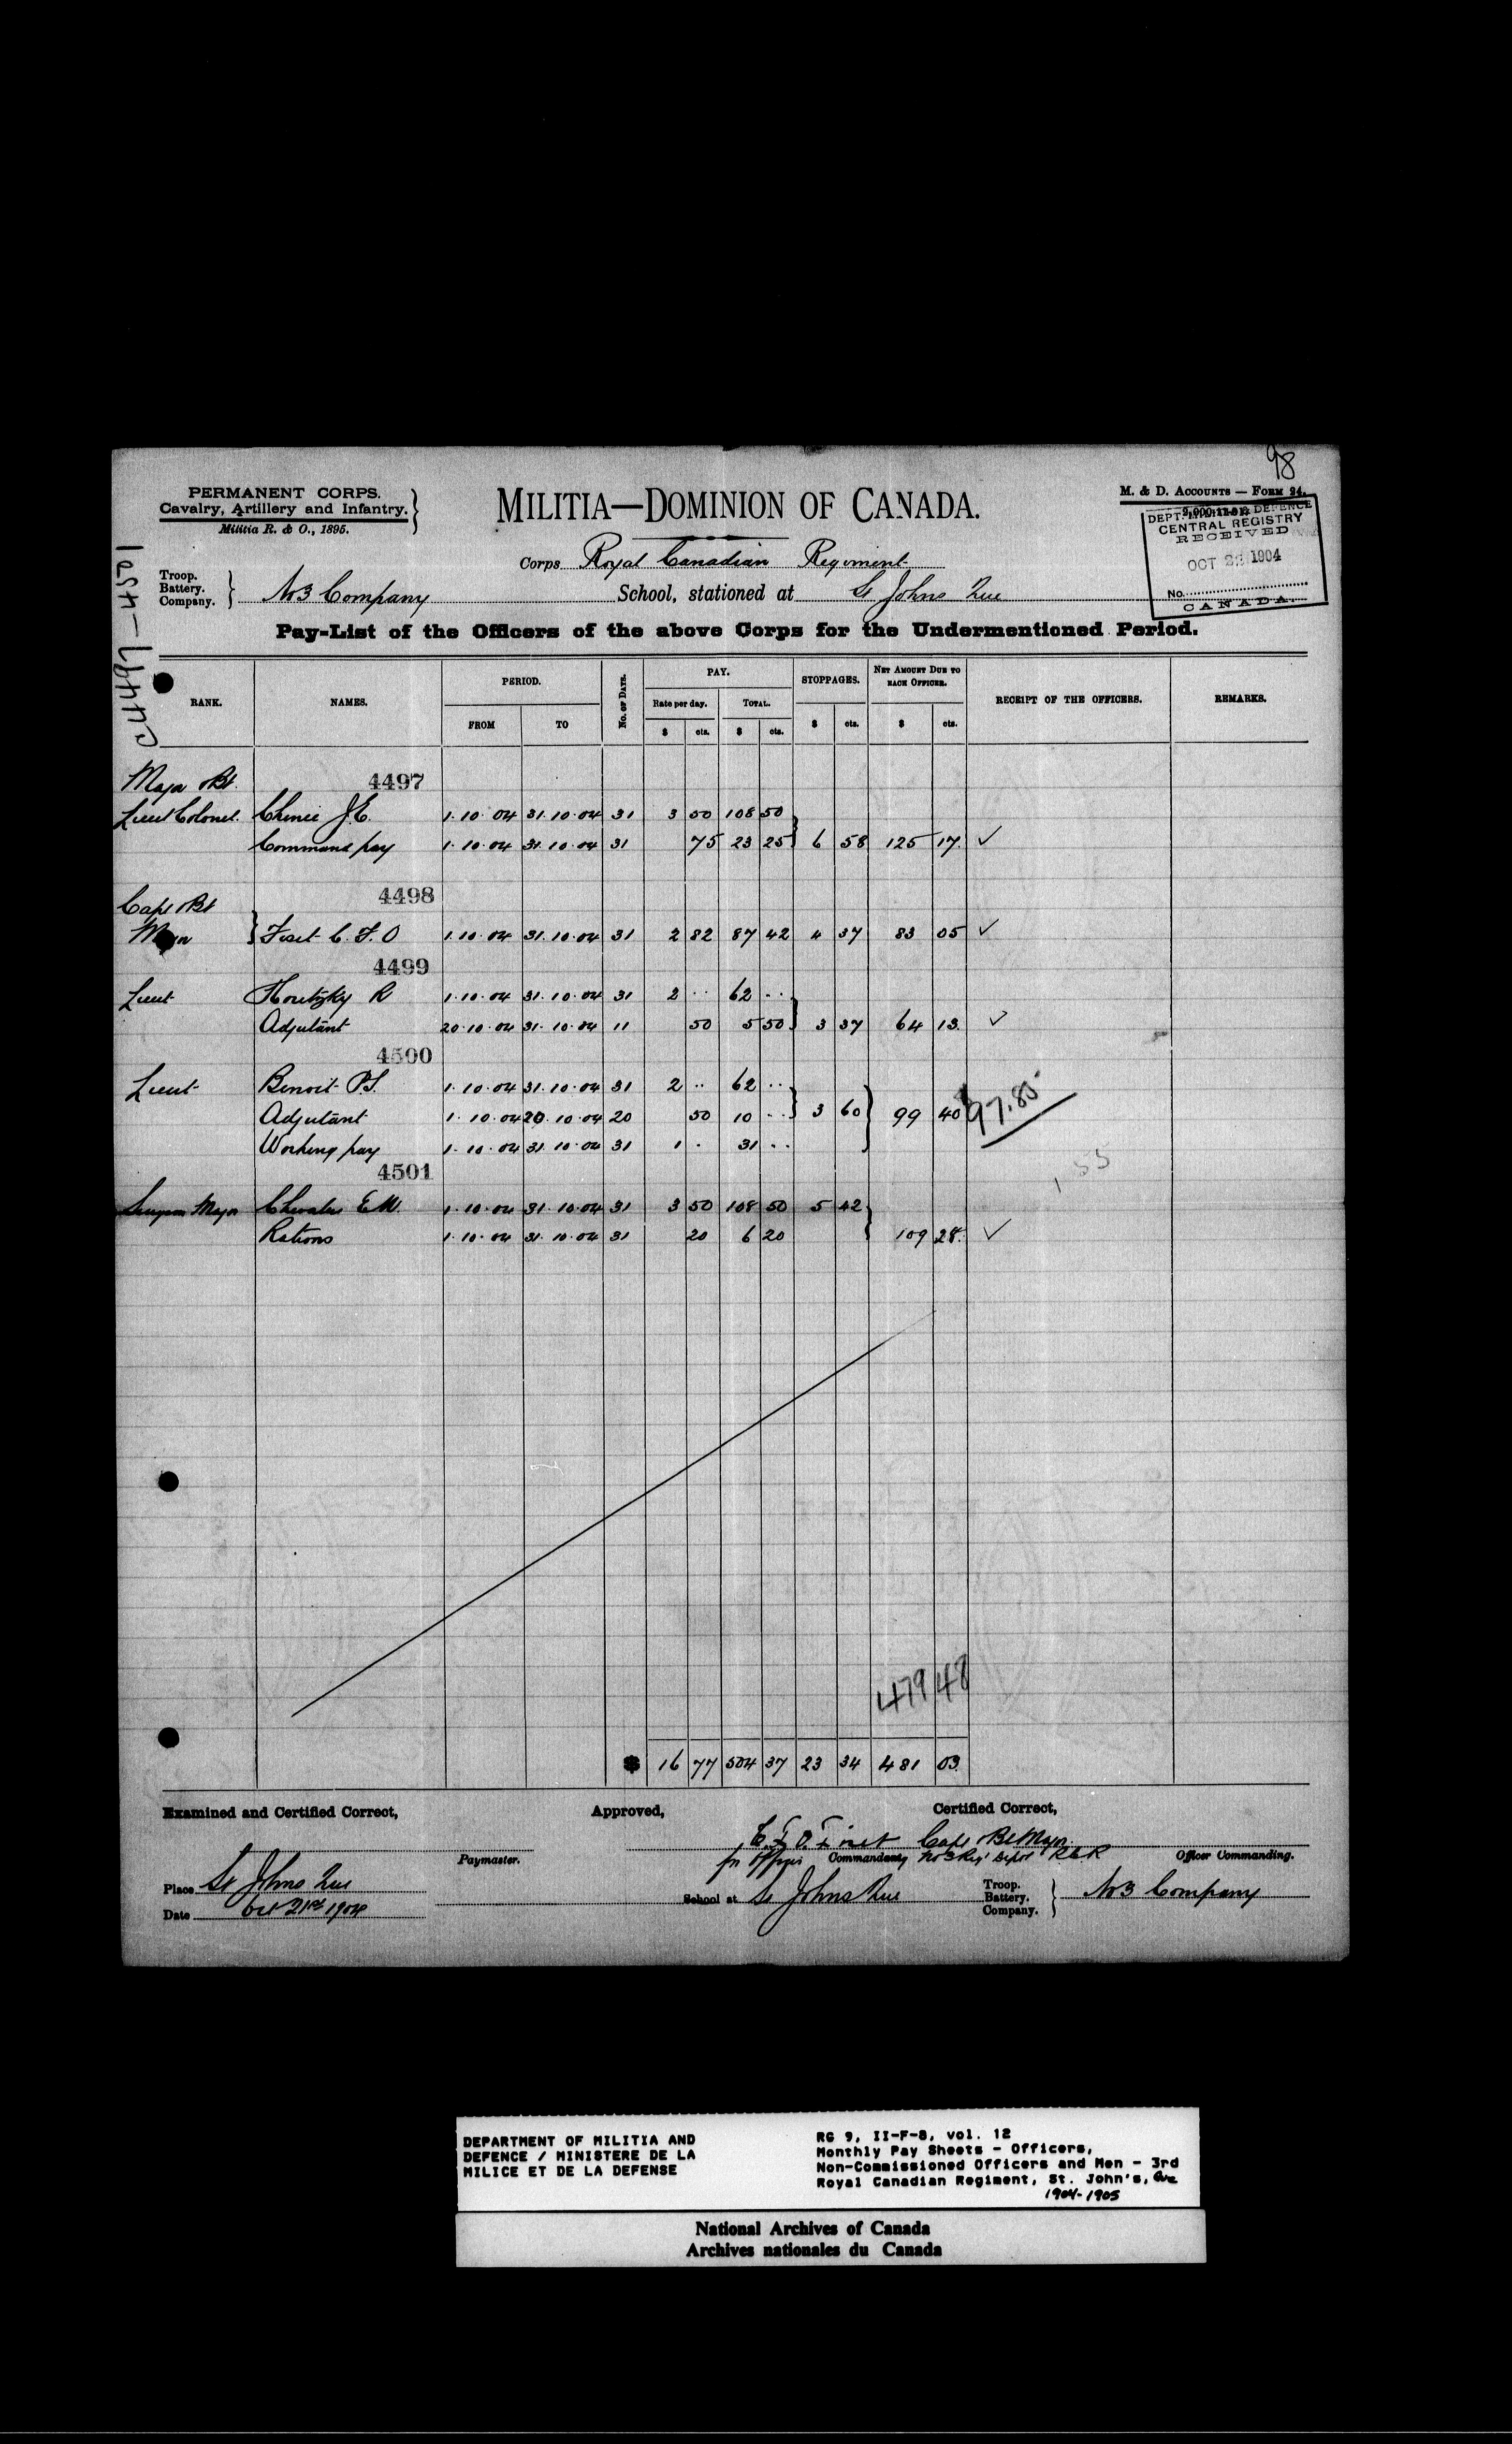 98
PERMANENT CORPS.
Cavalry, Artillery and Infantry.
Militia R. & O., 1895.
MILITIA—DOMINION OF CANADA.
M. & D. ACCOUNTS — FORM 24.
DEPT. DEFENCE
CENTRAL REGISTRY
RECEIVED
OCT 1904
No.
CANADA.
Corps Royal Canadian Regiment
Troop.
Battery.
Company.
No 3 Company School, stationed at St Johns Que
Pay-List of the Officers of the above Corps for the Undermentioned Period.
C4497-4501
RANK. NAMES. PERIOD. No. OF DAYS. PAY. STOPPAGES. NET AMOUNT DUE TO EACH OFFICER. RECEIPT OF THE OFFICERS. REMARKS.
FROM TO Rate per day. TOTAL.
$ cts. $ cts. $ cts. $ cts.
Major Bt 4497
Lieut Colonel Chinic J.E. 1.10.04 31.10.04 31 3 50 108 50
Command pay 1.10.04 31.10.04 31 75 23 25 6 58 125 17 ✓
Capt Bt 4498
Major Fiset C.F.O 1.10.04 31.10.04 31 2 82 87 42 4 37 83 05 ✓
4499
Lieut Horetzky R 1.10.04 31.10.04 31 2 .. 62 ..
Adjutant 20.10.04 31.10.04 11 50 5 50 3 37 64 13 ✓
4500
Lieut Benoit P.S. 1.10.04 31.10.04 31 2 .. 62 ..
Adjutant 1.10.04 20.10.04 20 50 10 .. 3 60 99 40 97.85
Working pay 1.10.04 31.10.04 31 1 . 31 ..
1 55
4501
Surgeon Major 1.10.04 31.10.04 31 3 50 108 50 5 42
Rations 1.10.04 31.10.04 31 20 6 20 109 28 ✓
479 48
$ 16 77 504 37 23 34 481 03
Examined and Certified Correct, Approved, Certified Correct,
C.F.O. Fiset Capt Bt Major
Paymaster. for Officer Commanding No 3 Reg'l Depot RCR Officer Commanding.
Place St Johns Que School at St Johns Que Troop.
Battery.
Company.
No 3 Company
Date Oct 21st 1904
DEPARTMENT OF MILITIA AND
DEFENCE / MINISTERE DE LA
MILICE ET DE LA DEFENSE
RG 9, II-F-8, vol. 12
Monthly Pay Sheets - Officers,
Non-Commissioned Officers and Men - 3rd
Royal Canadian Regiment, St. John's, Que
1904-1905
National Archives of Canada
Archives nationales du Canada